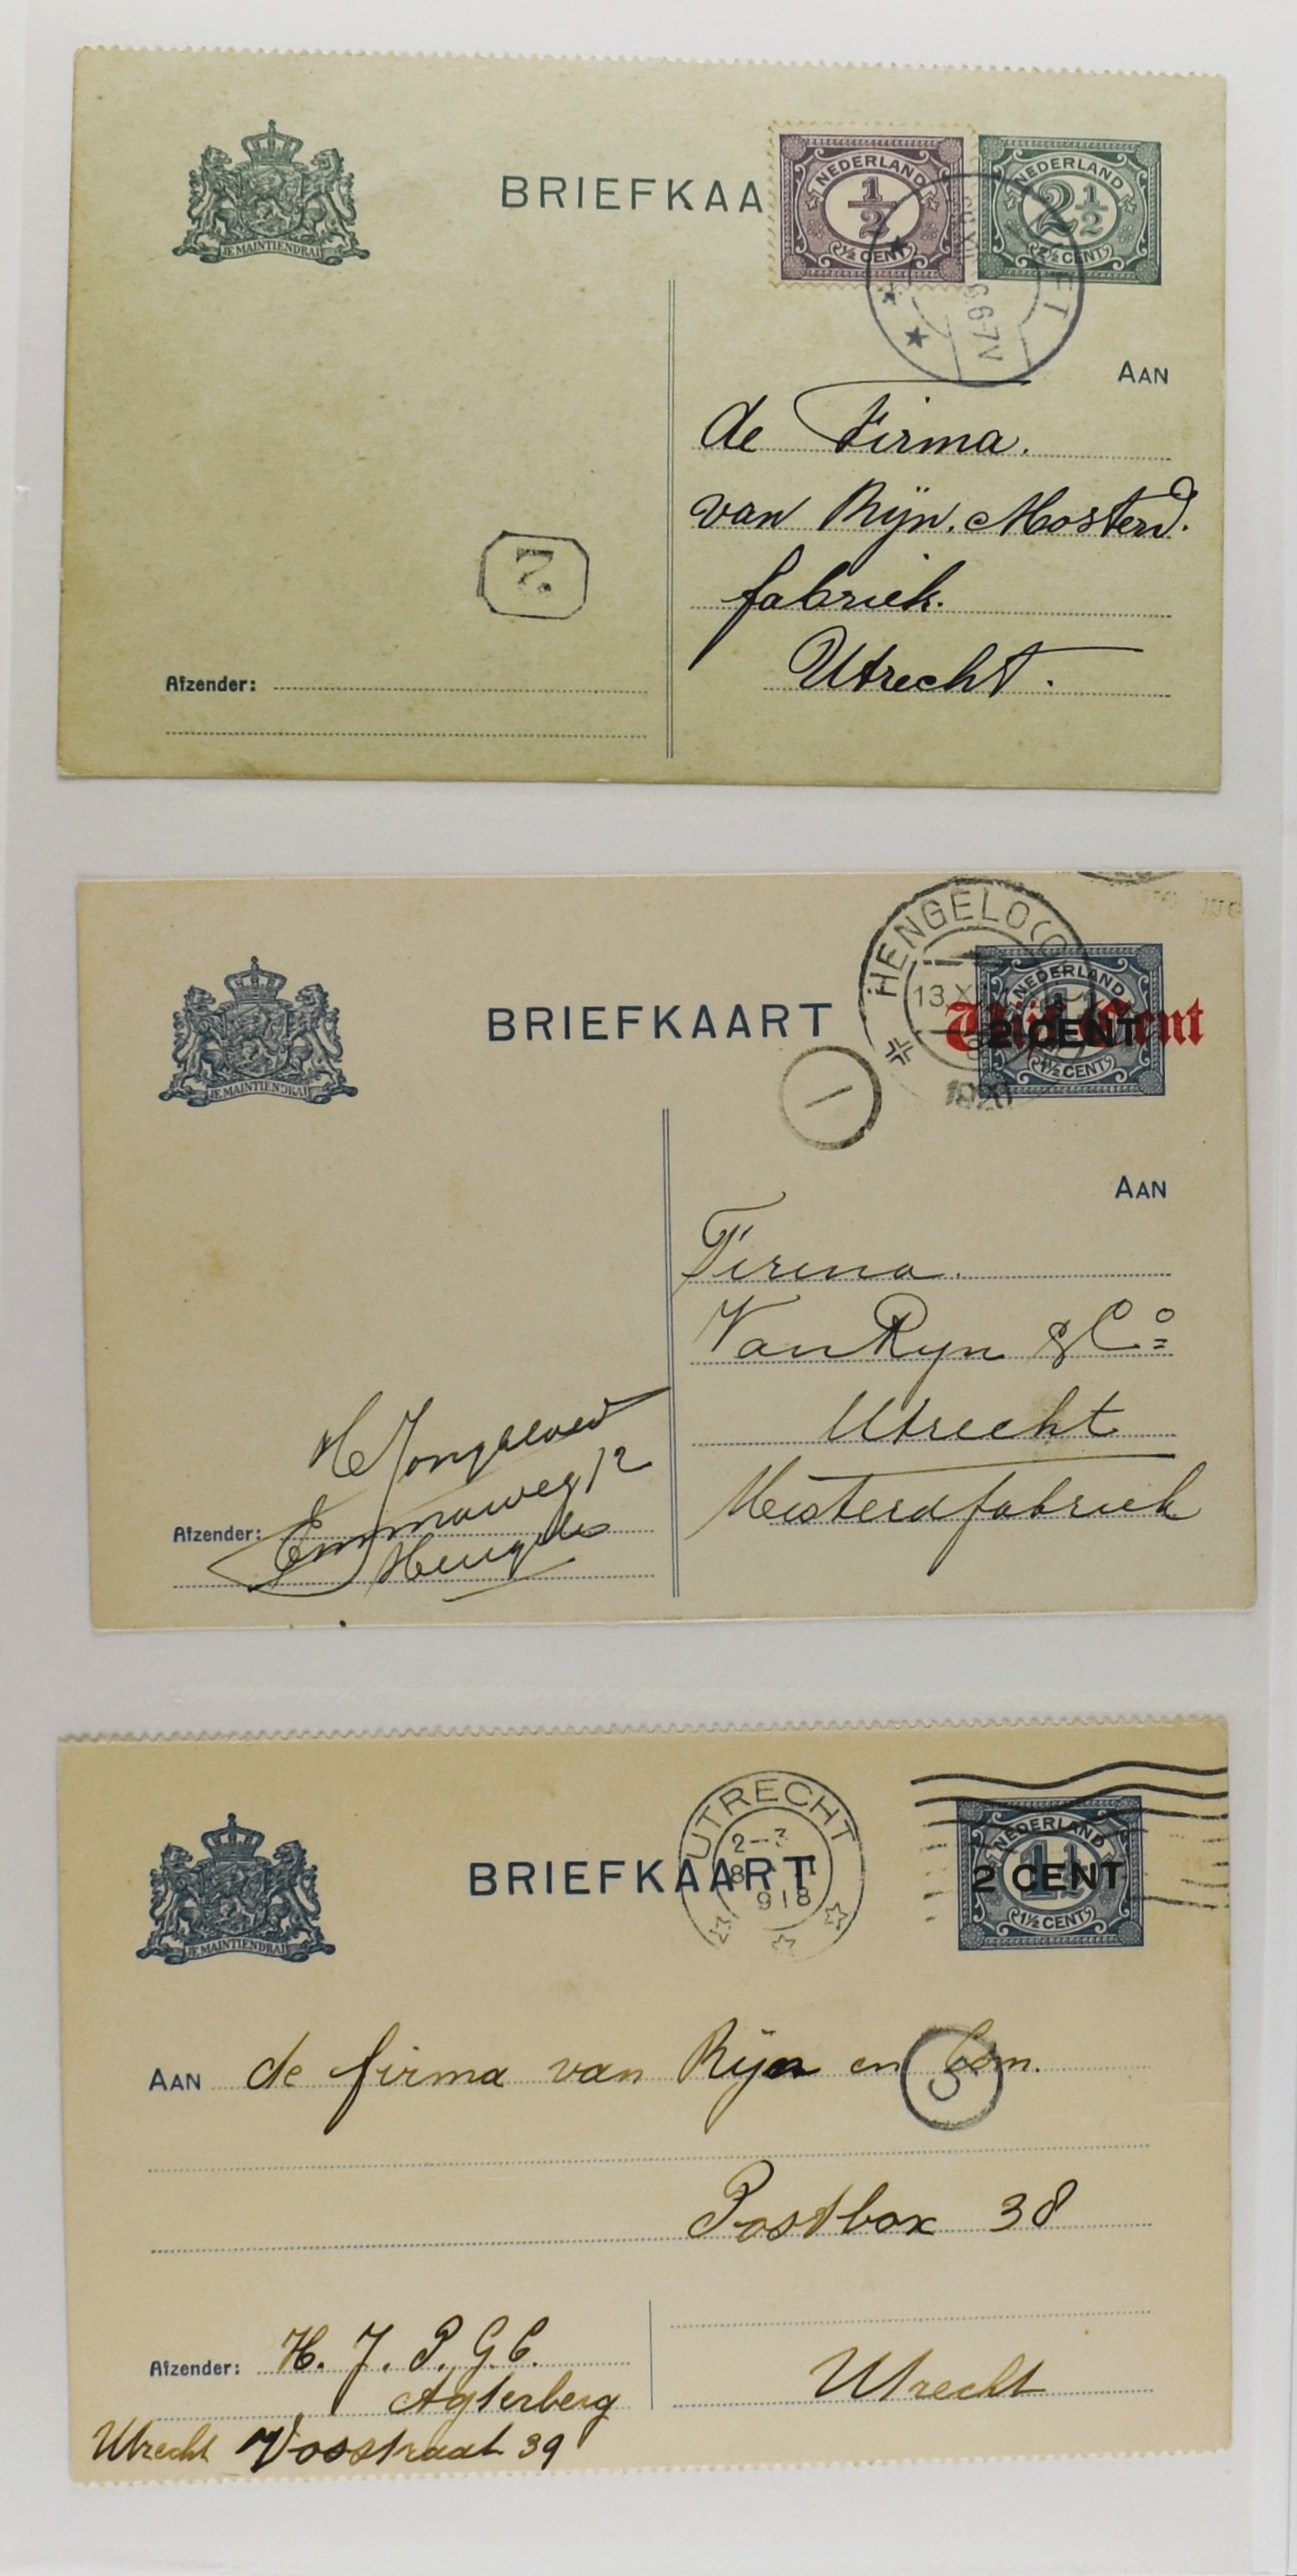 JE MAINTIENDRAI
BRIEFKAA
NEDERLAND
½
½ CENT
NEDERLAND
2½
2½ CENT
6-7N
AAN
de Firma.
van Rijn. Mosterd.
fabriek.
Utrecht.
2
Afzender:
JE MAINTIENDRAI
BRIEFKAART
HENGELO(O
13 X
1920
NEDERLAND
Vijf Cent
2 CENT
1½ CENT
AAN
Firma.
Van Ryn & Co
Utrecht
Mosterdfabriek
Afzender:
Emmaweg 12
Hengelo
JE MAINTIENDRAI
BRIEFKAART
UTRECHT
2-3
918
NEDERLAND
2 CENT
1½
1½ CENT
AAN de firma van Rijn en Com.
Postbox 38
Afzender: H. J. P. G. C.
Agterberg
Utrecht Vosstraat 39
Utrecht